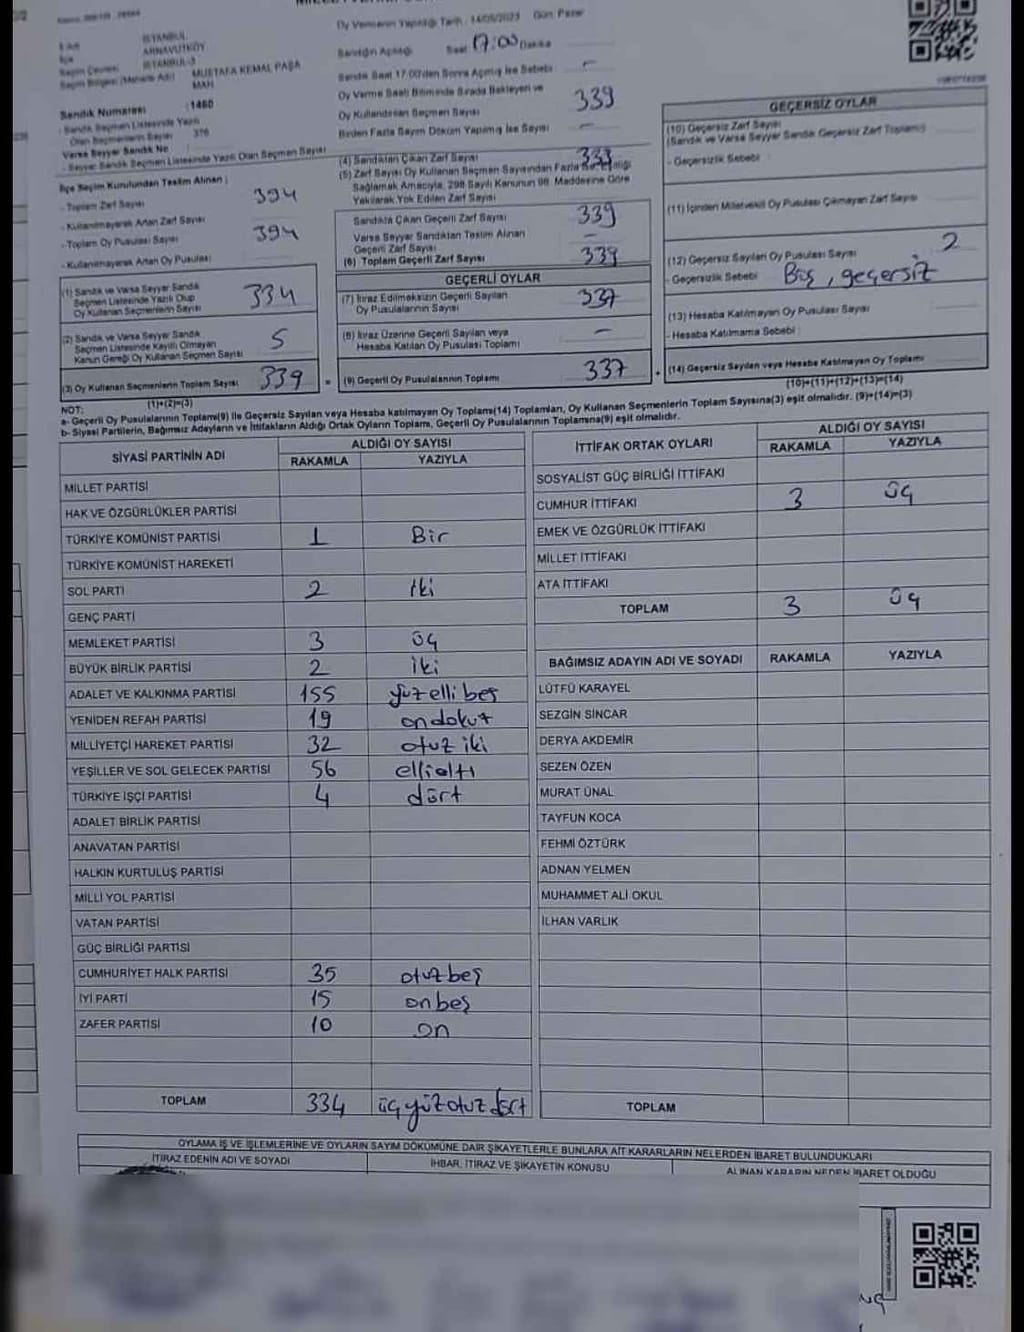 Oy Vermenin Yapıldığı Tarih : 14/05/2023 Gün: Pazar
İli Adı : İSTANBUL
İlçe : ARNAVUTKÖY
Seçim Çevresi : İSTANBUL-3
Seçim Bölgesi (Mahalle Adı) : MUSTAFA KEMAL PAŞA MAH
Sandık Numarası : 1460
- Sandık Seçmen Listesinde Yazılı
Olan Seçmenlerin Sayısı : 376
Varsa Seyyar Sandık No :
- Seyyar Sandık Seçmen Listesinde Yazılı Olan Seçmen Sayısı :
İlçe Seçim Kurulundan Teslim Alınan :
- Toplam Zarf Sayısı 394
- Kullanılmayarak Artan Zarf Sayısı
- Toplam Oy Pusulası Sayısı 394
- Kullanılmayarak Artan Oy Pusulası
(1) Sandık ve Varsa Seyyar Sandık
Seçmen Listesinde Yazılı Olup
Oy Kullanan Seçmenlerin Sayısı 334
(2) Sandık ve Varsa Seyyar Sandık
Seçmen Listesinde Kayıtlı Olmayan
Kanun Gereği Oy Kullanan Seçmen Sayısı 5
(3) Oy Kullanan Seçmenlerin Toplam Sayısı 339
(1)+(2)=(3)
Sandığın Açıldığı Saat 17:00 Dakika
Sandık Saat 17.00'den Sonra Açılmış İse Sebebi : -
Oy Verme Saati Bitiminde Sırada Bekleyen ve
Oy Kullandırılan Seçmen Sayısı 339
Birden Fazla Sayım Döküm Yapılmış İse Sayısı -
(4) Sandıktan Çıkan Zarf Sayısı 339
(5) Zarf Sayısı Oy Kullanan Seçmen Sayısından Fazla İse Eşitliği
Sağlamak Amacıyla, 298 Sayılı Kanunun 98. Maddesine Göre
Yakılarak Yok Edilen Zarf Sayısı
Sandıkta Çıkan Geçerli Zarf Sayısı 339
Varsa Seyyar Sandıktan Teslim Alınan
Geçerli Zarf Sayısı -
(6) Toplam Geçerli Zarf Sayısı 339
GEÇERLİ OYLAR
(7) İtiraz Edilmeksizin Geçerli Sayılan
Oy Pusulalarının Sayısı 337
(8) İtiraz Üzerine Geçerli Sayılan veya
Hesaba Katılan Oy Pusulası Toplamı -
= (9) Geçerli Oy Pusulalarının Toplamı 337
GEÇERSİZ OYLAR
(10) Geçersiz Zarf Sayısı
(Sandık ve Varsa Seyyar Sandık Geçersiz Zarf Toplamı)
- Geçersizlik Sebebi :
(11) İçinden Milletvekili Oy Pusulası Çıkmayan Zarf Sayısı
(12) Geçersiz Sayılan Oy Pusulası Sayısı 2
- Geçersizlik Sebebi Boş, geçersiz
(13) Hesaba Katılmayan Oy Pusulası Sayısı
- Hesaba Katılmama Sebebi :
+ (14) Geçersiz Sayılan veya Hesaba Katılmayan Oy Toplamı
(10)+(11)+(12)+(13)=(14)
NOT:
a- Geçerli Oy Pusulalarının Toplamı(9) ile Geçersiz Sayılan veya Hesaba katılmayan Oy Toplamı(14) Toplamları, Oy Kullanan Seçmenlerin Toplam Sayısına(3) eşit olmalıdır. (9)+(14)=(3)
b- Siyasi Partilerin, Bağımsız Adayların ve İttifakların Aldığı Ortak Oyların Toplamı, Geçerli Oy Pusulalarının Toplamına(9) eşit olmalıdır.
SİYASİ PARTİNİN ADI ALDIĞI OY SAYISI
RAKAMLA YAZIYLA
MİLLET PARTİSİ
HAK VE ÖZGÜRLÜKLER PARTİSİ
TÜRKİYE KOMÜNİST PARTİSİ 1 Bir
TÜRKİYE KOMÜNİST HAREKETİ
SOL PARTİ 2 iki
GENÇ PARTİ
MEMLEKET PARTİSİ 3 üç
BÜYÜK BİRLİK PARTİSİ 2 iki
ADALET VE KALKINMA PARTİSİ 155 yüz elli beş
YENİDEN REFAH PARTİSİ 19 on dokuz
MİLLİYETÇİ HAREKET PARTİSİ 32 otuz iki
YEŞİLLER VE SOL GELECEK PARTİSİ 56 elli altı
TÜRKİYE İŞÇİ PARTİSİ 4 dört
ADALET BİRLİK PARTİSİ
ANAVATAN PARTİSİ
HALKIN KURTULUŞ PARTİSİ
MİLLİ YOL PARTİSİ
VATAN PARTİSİ
GÜÇ BİRLİĞİ PARTİSİ
CUMHURİYET HALK PARTİSİ 35 otuz beş
İYİ PARTİ 15 on beş
ZAFER PARTİSİ 10 on
TOPLAM 334 üç yüz otuz dört
İTTİFAK ORTAK OYLARI ALDIĞI OY SAYISI
RAKAMLA YAZIYLA
SOSYALİST GÜÇ BİRLİĞİ İTTİFAKI
CUMHUR İTTİFAKI 3 üç
EMEK VE ÖZGÜRLÜK İTTİFAKI
MİLLET İTTİFAKI
ATA İTTİFAKI
TOPLAM 3 üç
BAĞIMSIZ ADAYIN ADI VE SOYADI RAKAMLA YAZIYLA
LÜTFÜ KARAYEL
SEZGİN SİNCAR
DERYA AKDEMİR
SEZEN ÖZEN
MURAT ÜNAL
TAYFUN KOCA
FEHMİ ÖZTÜRK
ADNAN YELMEN
MUHAMMET ALİ OKUL
İLHAN VARLIK
TOPLAM
OYLAMA İŞ VE İŞLEMLERİNE VE OYLARIN SAYIM DÖKÜMÜNE DAİR ŞİKAYETLERLE BUNLARA AİT KARARLARIN NELERDEN İBARET BULUNDUKLARI
İTİRAZ EDENİN ADI VE SOYADI İHBAR, İTİRAZ VE ŞİKAYETİN KONUSU ALINAN KARARIN NEDEN İBARET OLDUĞU